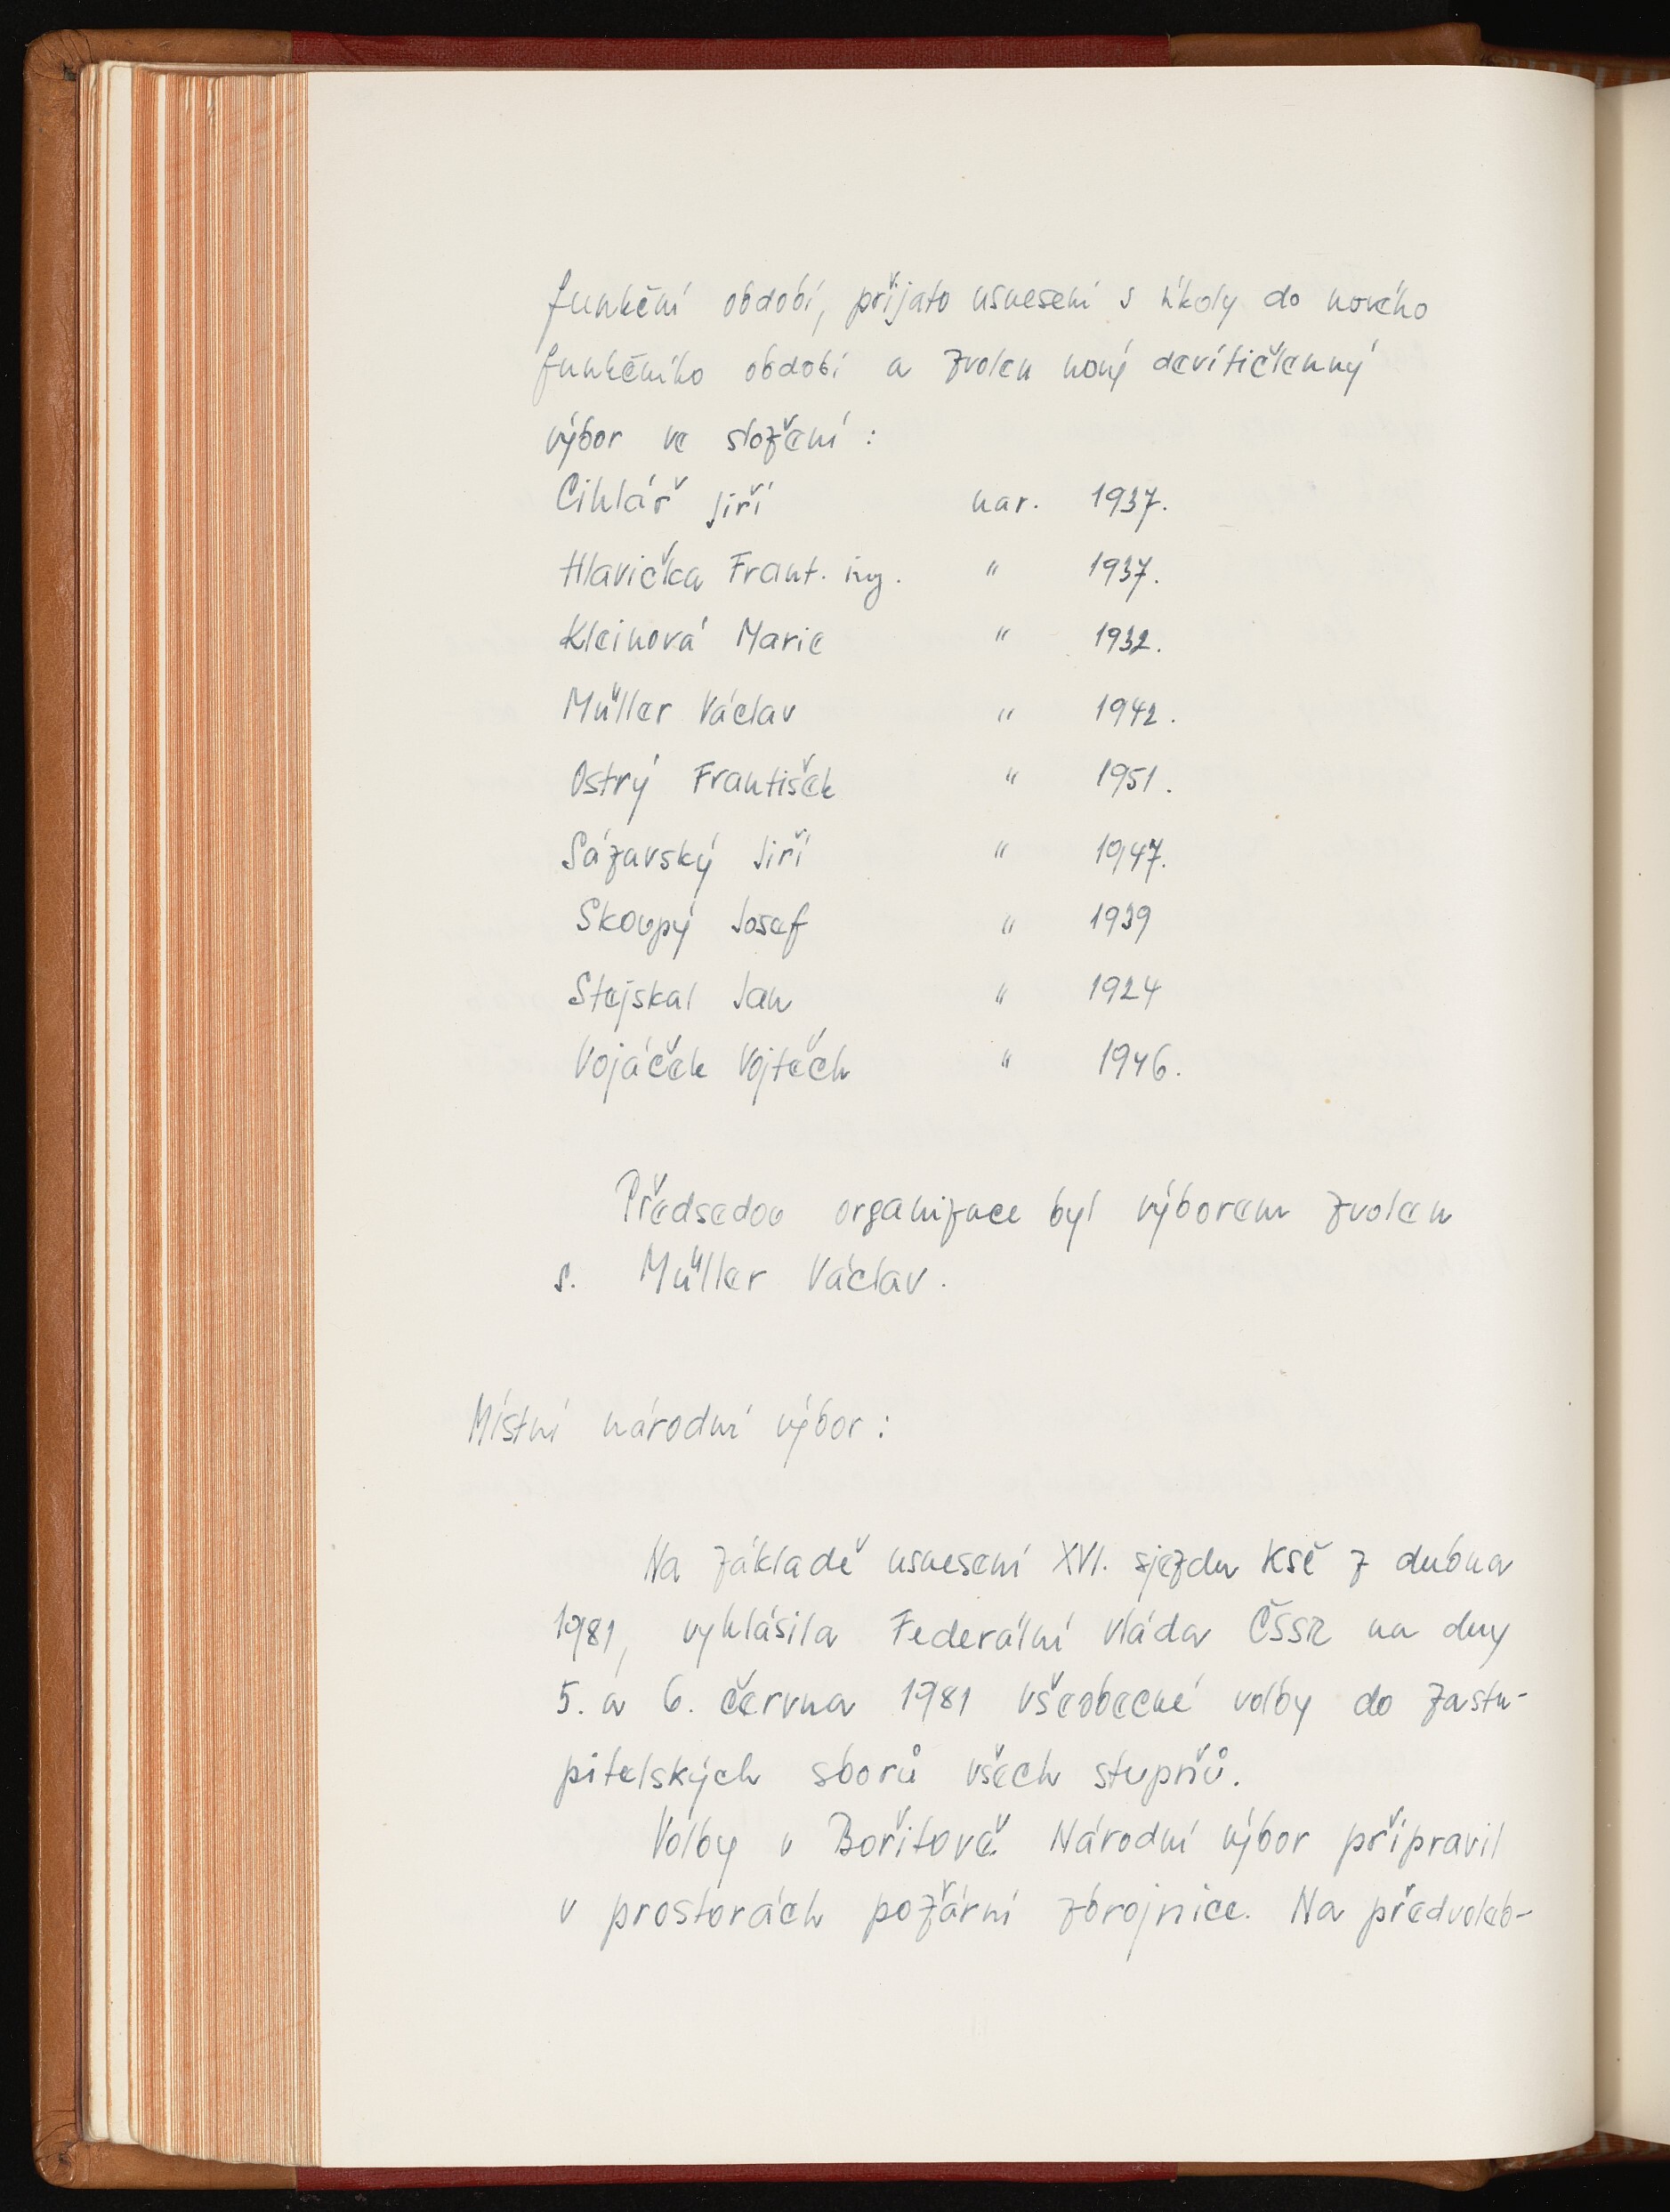 funkční období, přijato usnesení s úkoly do nového
funkčního období a zvolen nový devítičlenný
výbor ve složení :
Cihlář Jiří nar. 1937.
Hlavička Frant. ing. " 1937.
Kleinová Marie " 1932.
Müller Václav " 1942.
Ostrý František " 1951.
Sázavský Jiří " 1947.
Skoupý Josef " 1939
Stejskal Jan " 1924
Vojáček Vojtěch " 1946.
Předsedou organizace byl výborem zvolen
s. Müller Václav.
Místní národní výbor :
Na základě usnesení XVI. sjezdu KSČ z dubna
1981, vyhlásila Federální vláda ČSSR na dny
5. a 6. června 1981 všeobecné volby do zastu-
pitelských sborů všech stupňů.
Volby v Bořitově. Národní výbor připravil
v prostorách požární zbrojnice. Na předvoleb-